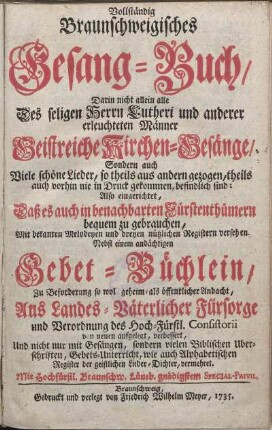 Vollständig
Braunschweigisches
Gesang-Buch/
Darin nicht allein alle
Des seligen Herrn Lutheri und anderer
erleuchteten Männer
Geistreiche Kirchen-Gesänge/
Sondern auch
Viele schöne Lieder, so theils aus andern gezogen, theils
auch vorhin nie in Druck gekommen, befindlich sind:
Also eingerichtet,
Daß es auch in benachbarten Fürstenthümern
bequem zu gebrauchen,
Mit bekanten Melodeyen und dreyen nützlichen Registern versehen.
Nebst einem andächtigen
Gebet-Büchlein,
Zu Beforderung so wol geheim- als öffentlicher Andacht,
Aus Landes-Väterlicher Fürsorge
und Verordnung des Hoch-Fürstl. Consistorii
von neuen aufgelegt, verbessert,
Und nicht nur mit Gesängen, sondern vielen Biblischen Uber-
schriften, Gebets-Unterricht, wie auch Alphabetischen
Register der geistlichen Lieder-Dichter, vermehret.
Mit Hochfürstl. Braunschw. Lüneb. gnädigstem SPECIAL-PRIVIL.
Braunschweig,
Gedruckt und verlegt von Friedrich Wilhelm Meyer, 1735.